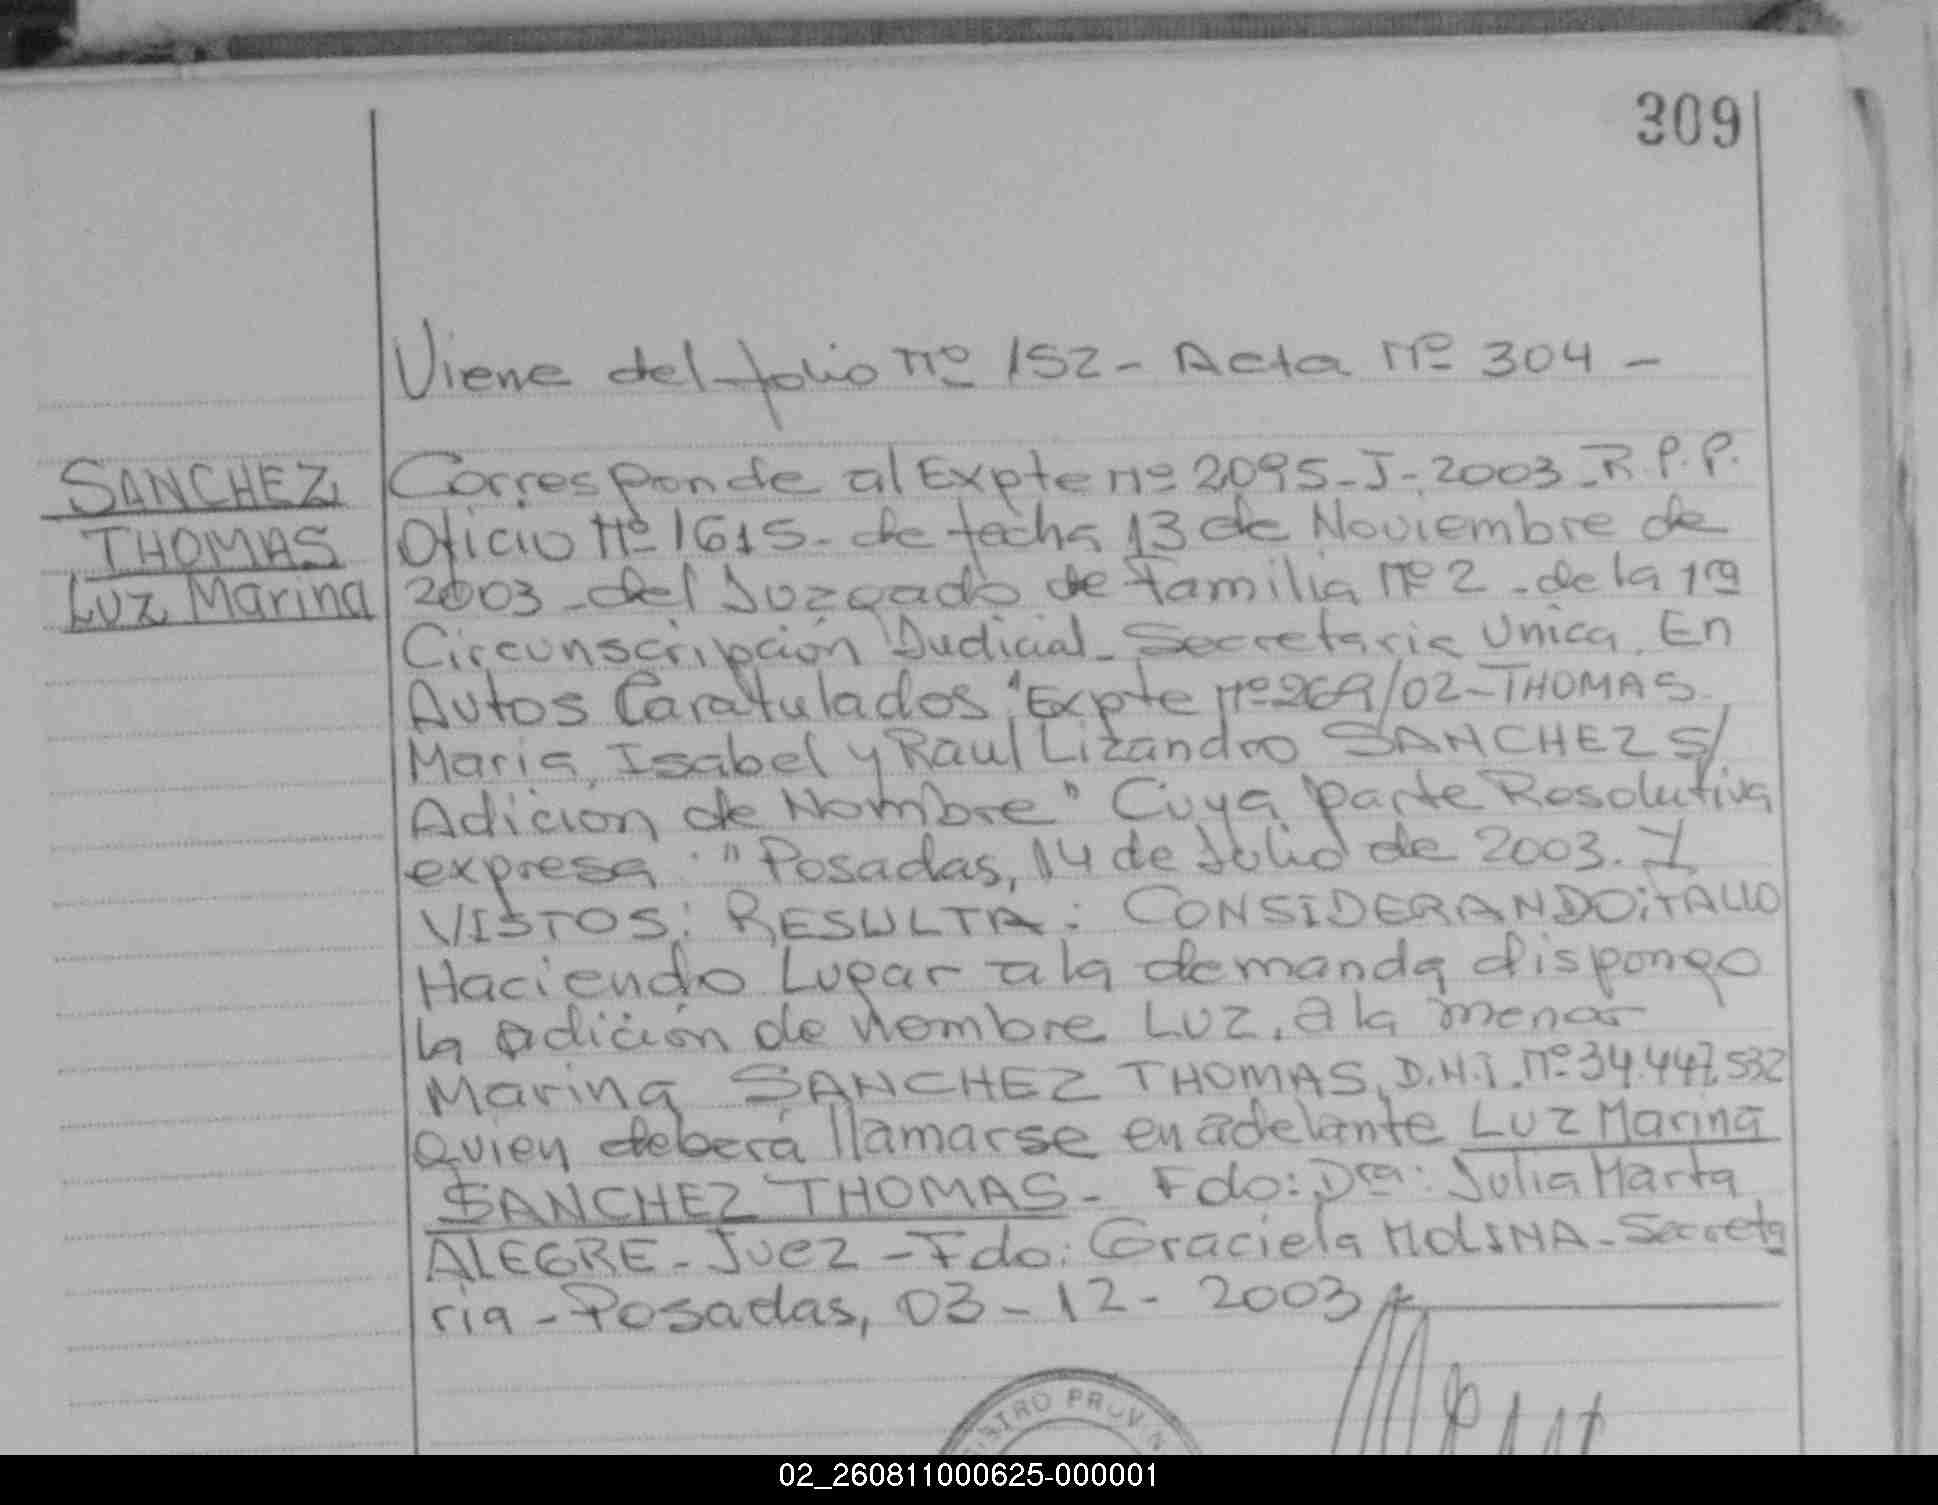 309
Viene del folio Nº 152 - Acta Nº 304 -
SANCHEZ
THOMAS
Luz Marina
Corresponde al Expte nº 2095-J-2003-R.P.P.
Oficio Nº 1615- de fecha 13 de Noviembre de
2003-del Juzgado de familia Nº 2 -de la 1ra
Circunscripción Judicial- Secretaria Unica. En
Autos Caratulados "Expte Nº 269/02-THOMAS
Maria, Isabel y Raul Lizandro SANCHEZ S/
Adición de Nombre" Cuya parte Resolutiva
expresa: "Posadas, 14 de Julio de 2003. Y
VISTOS: RESULTA: CONSIDERANDO: FALLO
Haciendo Lugar a la demanda dispongo
la adición de nombre LUZ, a la menor
Marina SANCHEZ THOMAS, D.N.I. Nº 34.447.532
Quien deberá llamarse en adelante LUZ Marina
SANCHEZ THOMAS- Fdo: Dra: Julia Marta
ALEGRE-Juez-Fdo: Graciela MOLINA-Secreta
ria-Posadas, 03-12-2003
PROVIN
02_260811000625-000001